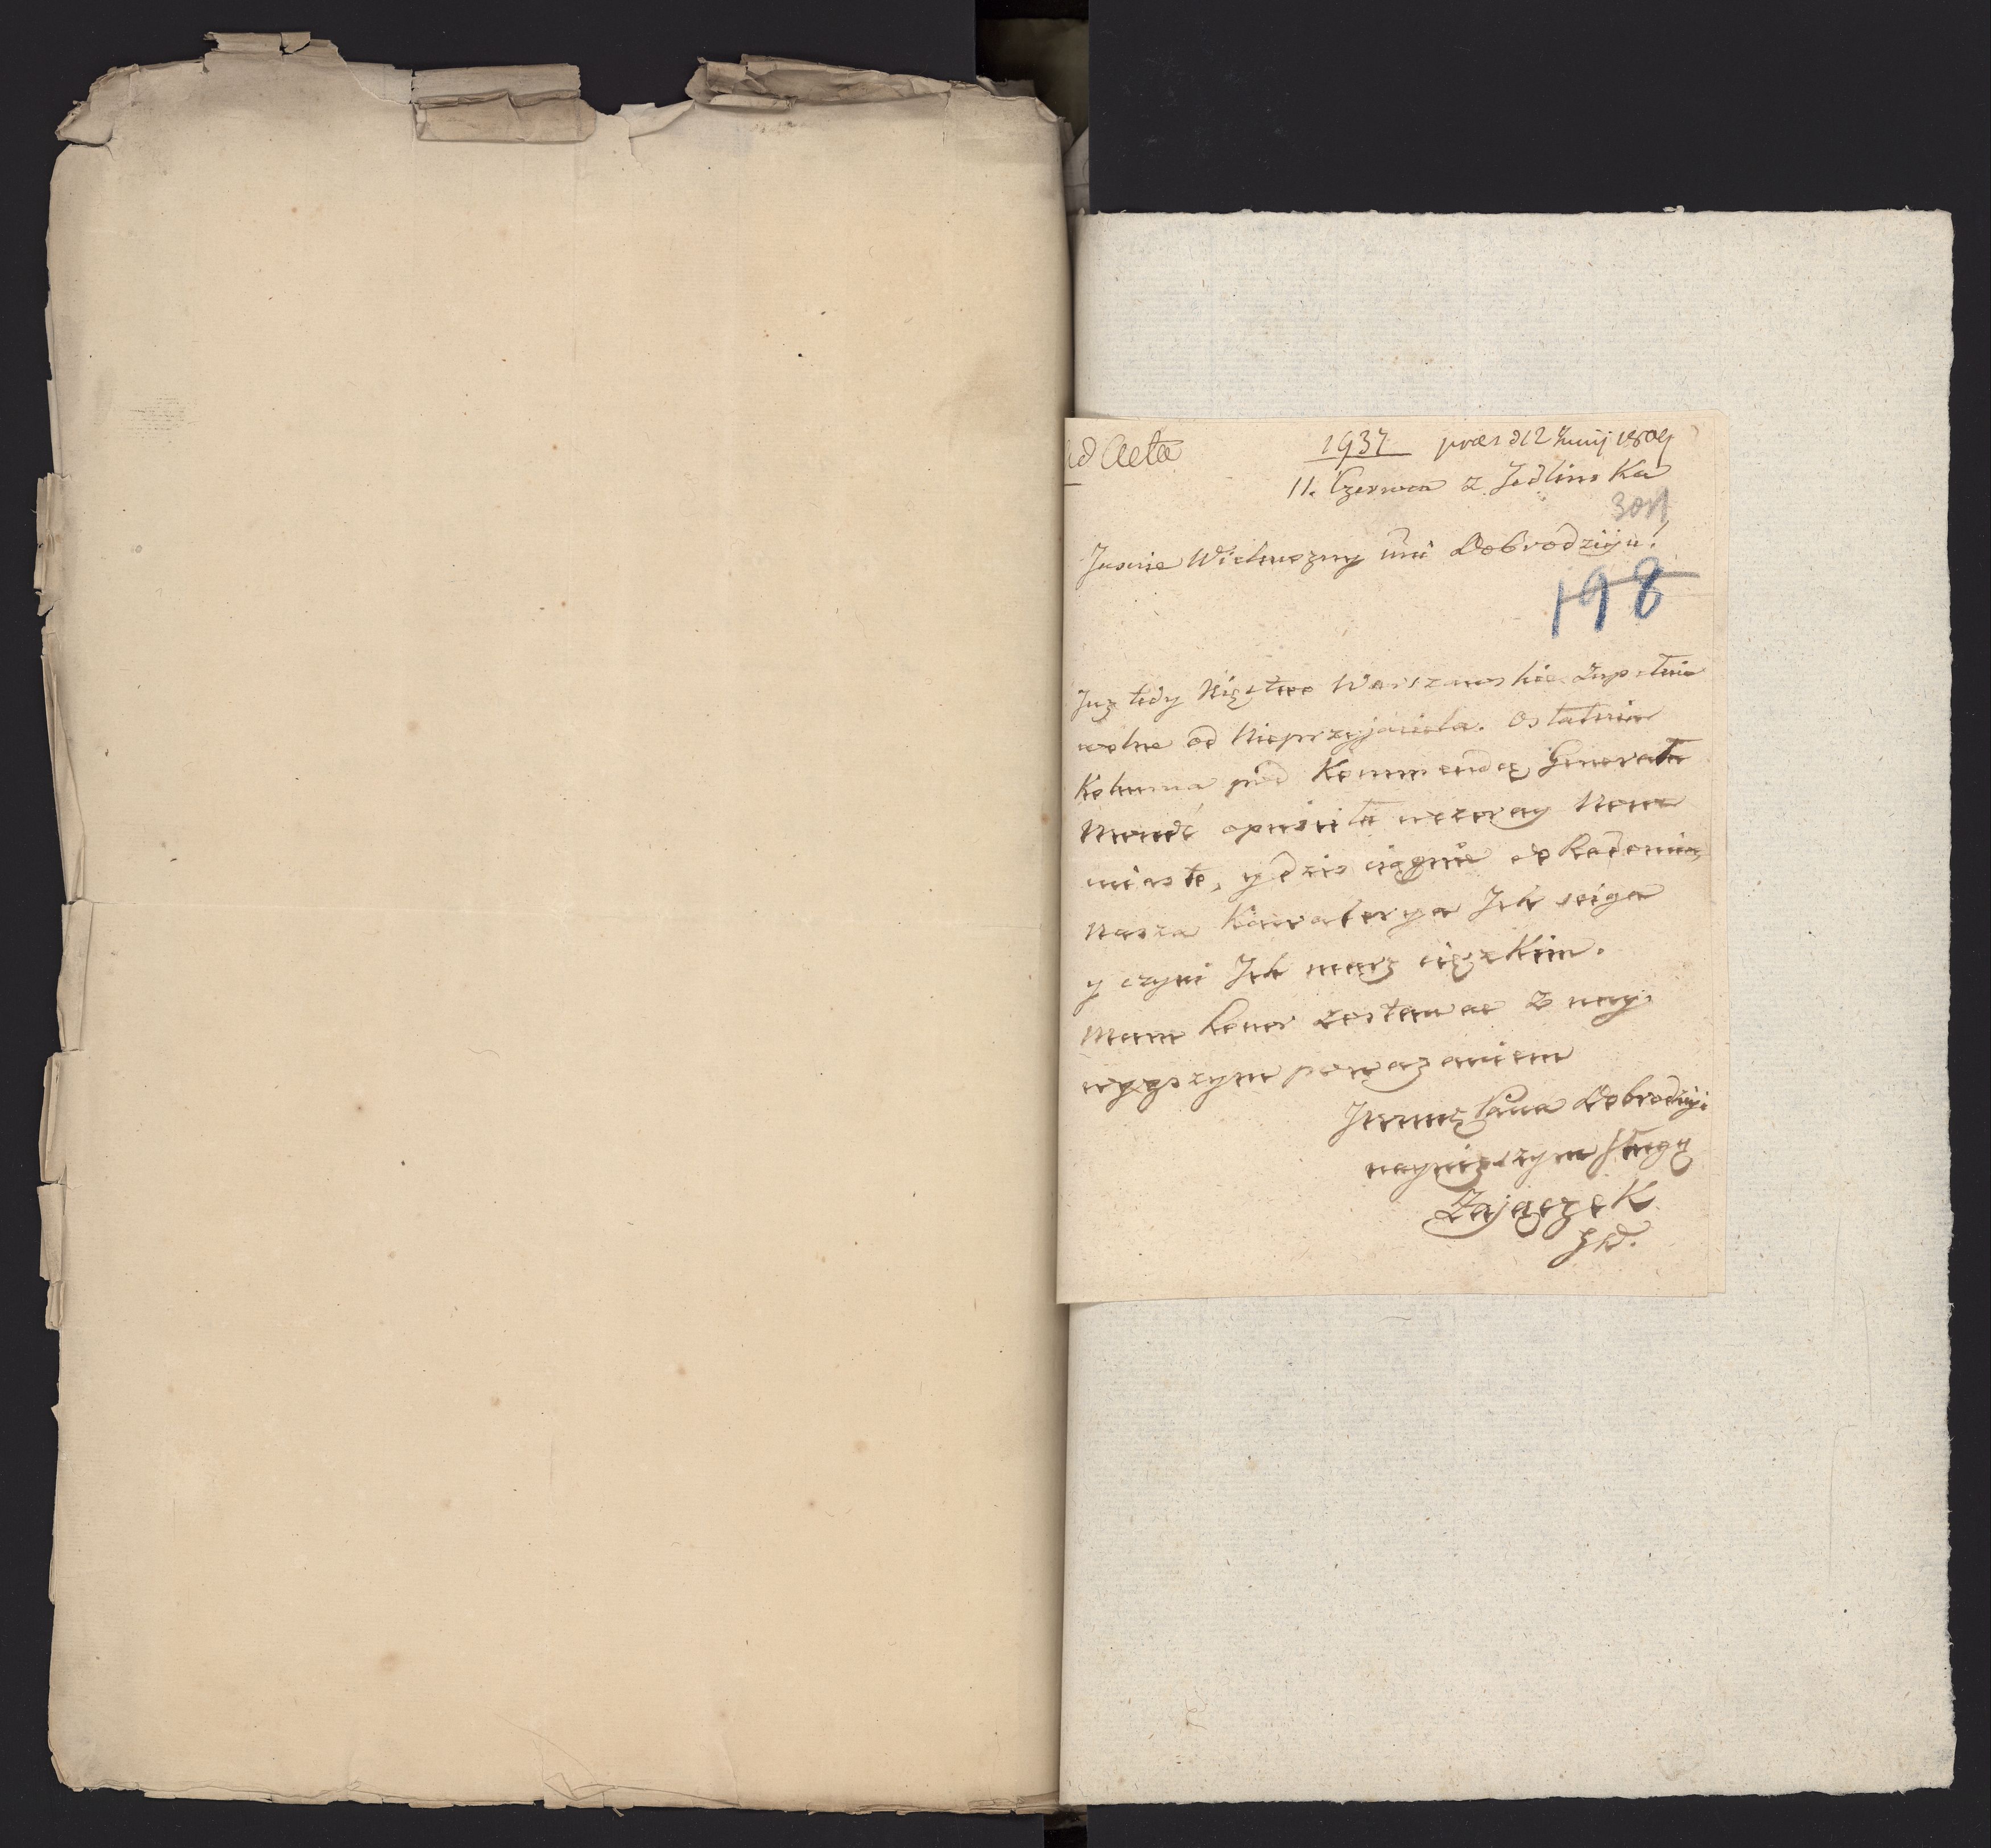 ad Acta
1937 praes d 12 Junij 1809
11. Czerwca z Jedlinska
301
Jasnie Wielmozny mci Dobrodzieju!
198
Juz tedy Xięstwo Warszawskie zupełnie
wolne od Nieprzyjaciela. Ostatnia
Kolumna pod Kommendą Generała
Mondè opuściła wczoray Nowe
miasto, y dzis ciągnie do Radomia,
Nasza Kawalerya Ich sciga
y czyni Ich marz cięzkim.
Mam honor zostawac z nay,
wyzszym powazaniem
JWnego Pana Dobrodzieja
naynizszym sługą
Zajączek